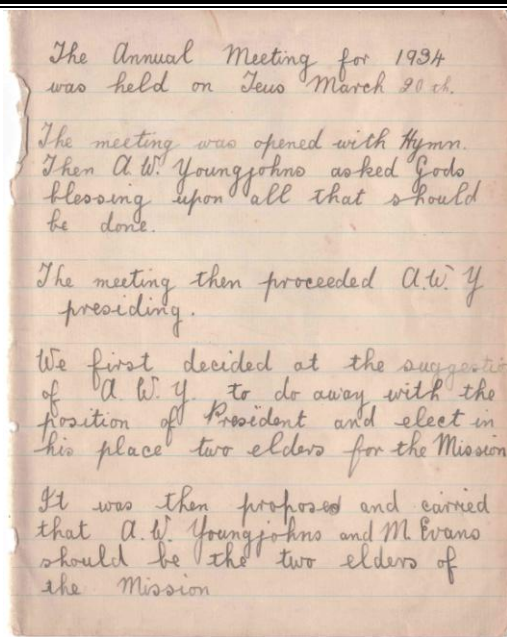 The Annual Meeting for 1934
was held on Teus March 20 th.
The meeting was opened with Hymn.
Then A.W. Youngjohns asked Gods
blessing upon all that should
be done.
The meeting then proceeded A.W. Y
presiding.
We first decided at the suggestio
of A. W. Y. to do away with the
position of President and elect in
his place two elders for the Mission
It was then proposed and carried
that A.W. Youngjohns and M. Evans
should be the two elders of
the Mission